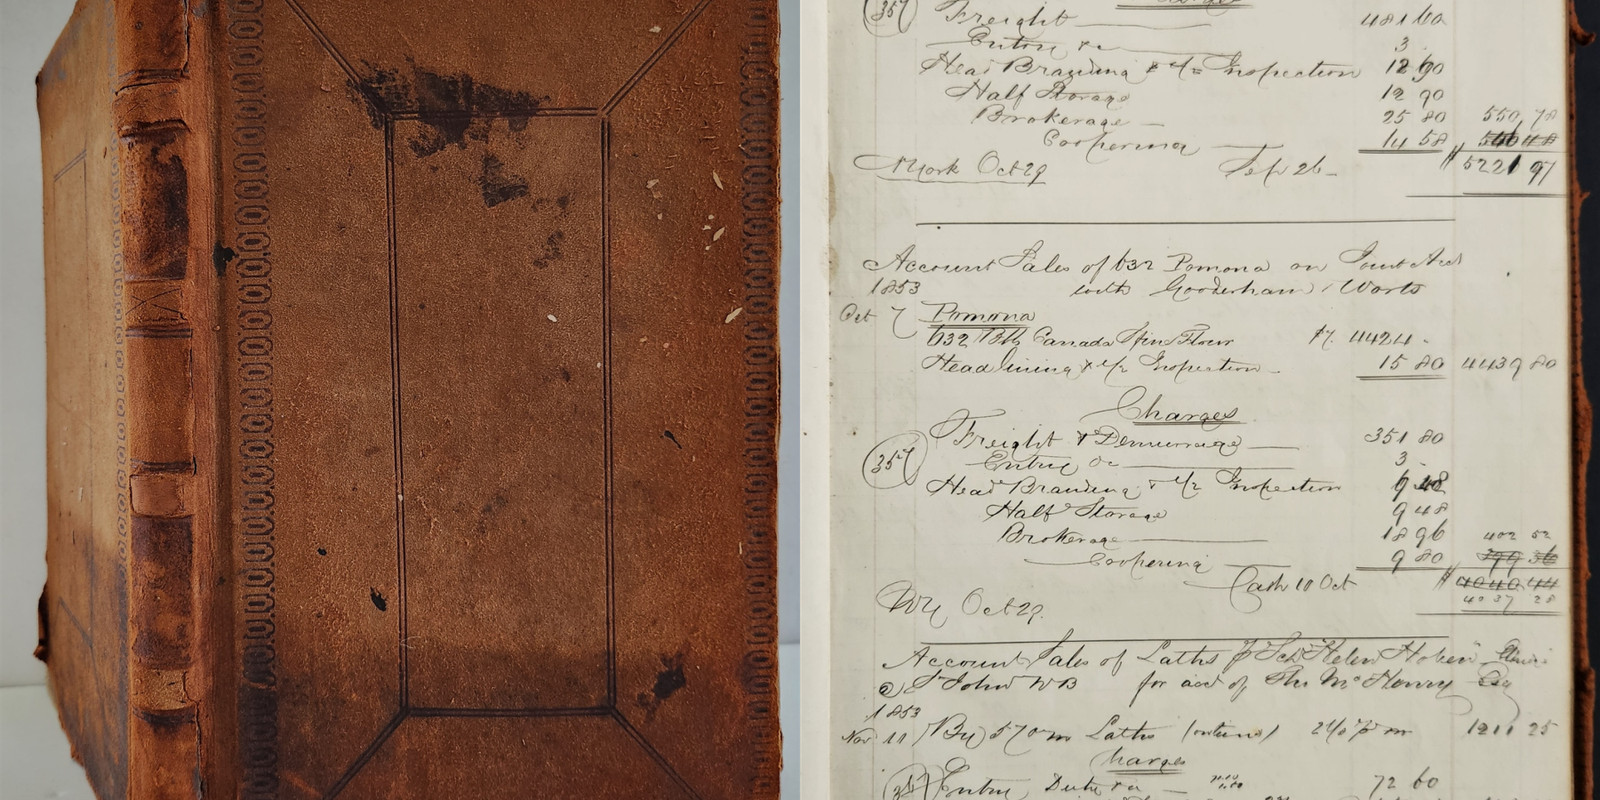 357
Freight 481 60
Entry &c 3
Head Branding & 1/2 Inspection 12 90
Half Storage 12 90
Brokerage 25 80 550,78
Coopering 14 58
NYork Oct 29 Sep 26 5221 97
Account Sales of 632 Pomona on Joint Acct
1853 with Gooderham & Worts
Oct 7 Pomona
632 Bbls Canada Spfin Flour $7. 4424.
Head lining & 1/2 Inspection 15 80 4439 80
Charges
Freight & Demurrage 351 80
357
Entry &c 3
Head Branding & 1/2 Inspection 9 48
Half Storage 9 48
Brokerage 18 96 402 52
Coopering 9 80 399 36
Cash 10 Oct 4040 44
NY Oct 29. 4037 28
Account Sales of Laths p Sch "Helen"
@ St John NB for acct of Thos McHenry Esq
1853
Nov 11 By 570 m Laths m 1211 25
Charges
Entry Duty &c 72 60